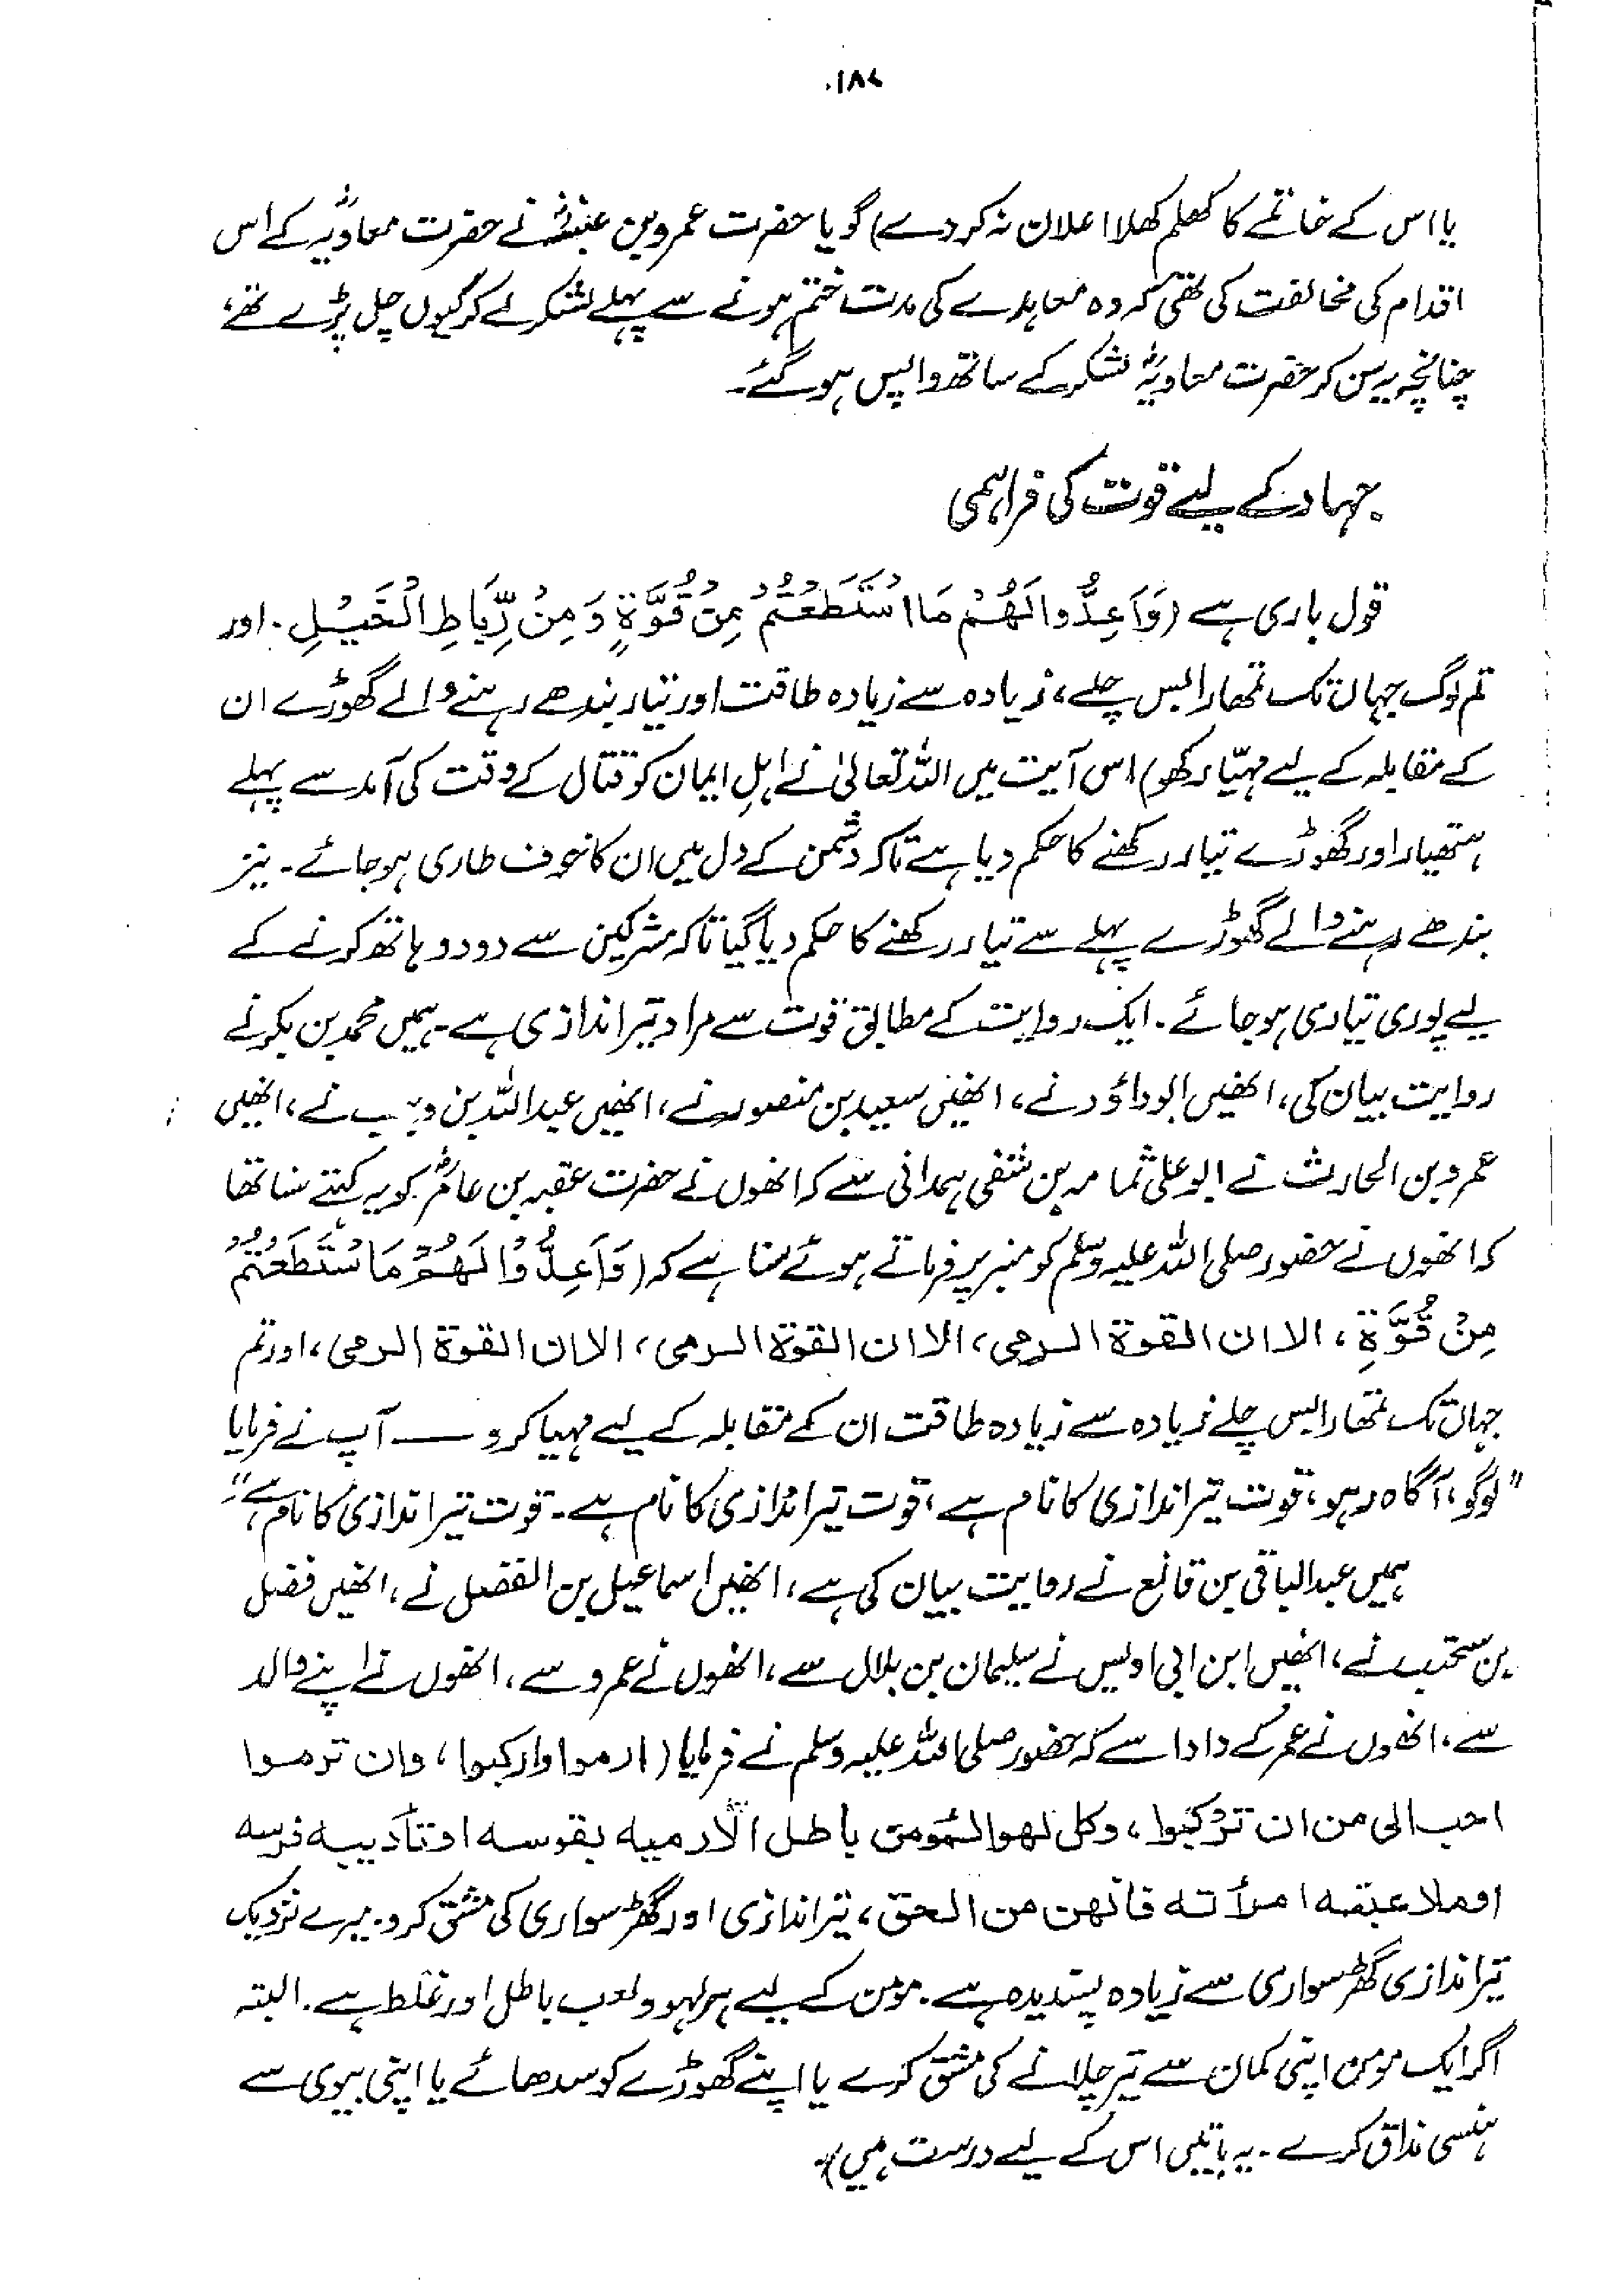 ۱۸۷
یا اس کے خاتمے کا کھلم کھلا اعلان نہ کر دے) گویا حضرت عمرو بن عنبسہؓ نے حضرت معاویہؓ کے اس
اقدام کی مخالفت کی تھی کہ وہ معاہدے کی مدت ختم ہونے سے پہلے لشکر لے کر کیوں چل پڑے تھے،
چنانچہ یہ سن کر حضرت معاویہؓ لشکر کے ساتھ واپس ہو گئے۔
جہاد کے لیے قوت کی فراہمی
قول باری ہے (وَاَعِدُّوا لَهُمْ مَا اسْتَطَعْتُمْ مِنْ قُوَّةٍ وَمِنْ رِّبَاطِ الْخَيْلِ۔ اور
تم لوگ جہاں تک تمھارا بس چلے، زیادہ سے زیادہ طاقت اور تیار بندھے رہنے والے گھوڑے ان
کے مقابلہ کے لیے مہیّا رکھو) اس آیت میں اللہ تعالیٰ نے اہلِ ایمان کو قتال کے وقت کی آمد سے پہلے
ہتھیار اور گھوڑے تیار رکھنے کا حکم دیا ہے تاکہ دشمن کے دل میں ان کا خوف طاری ہو جائے۔ نیز
بندھے رہنے والے گھوڑے پہلے سے تیار رکھنے کا حکم دیا گیا تاکہ مشرکین سے دو دو ہاتھ کرنے کے
لیے پوری تیاری ہو جائے۔ ایک روایت کے مطابق قوت سے مراد تیر اندازی ہے۔ ہمیں محمد بن بکر نے
روایت بیان کی، انھیں ابوداؤد نے، انھیں سعید بن منصور نے، انھیں عبداللہ بن وہب نے، انھیں
عمرو بن الحارث نے ابو علی ثمامہ بن شفی ہمدانی سے کہ انھوں نے حضرت عقبہ بن عامرؓ کو یہ کہتے سنا تھا
کہ انھوں نے حضور صلی اللہ علیہ وسلم کو منبر پر فرماتے ہوئے سنا ہے کہ (وَاَعِدُّوْا لَهُمْ مَا سْتَطَعْتُمْ
مِنْ قُوَّةٍ، الا ان القوة الرمی، الا ان القوة الرمی، الا ان القوة الرمی، اور تم
جہاں تک تمھارا بس چلے زیادہ سے زیادہ طاقت ان کے مقابلہ کے لیے مہیا کرو — آپ نے فرمایا
"لوگو، آگاہ رہو، قوت تیر اندازی کا نام ہے، قوت تیر اندازی کا نام ہے۔ قوت تیر اندازی کا نام ہے"۔
ہمیں عبدالباقی بن قانع نے روایت بیان کی ہے، انھیں اسماعیل بن الفضل نے، انھیں فضل
بن سحتب نے، انھیں ابن ابی اویس نے سلیمان بن بلال سے، انھوں نے عمرو سے، انھوں نے اپنے والد
سے، انھوں نے عمر کے دادا سے کہ حضور صلی اللہ علیہ وسلم نے فرمایا (ارموا وارکبوا، وان ترموا
احب الی من ان ترکبوا، وکل لهو المومن باطل الا رمیه بقوسه او تأدیبه فرسه
او ملاعبته امرأته فانهن من الحق، تیر اندازی اور گھڑ سواری کی مشق کرو۔ میرے نزدیک
تیر اندازی گھڑ سواری سے زیادہ پسندیدہ ہے۔ مومن کے لیے ہر لہو و لعب باطل اور غلط ہے۔ البتہ
اگر ایک مومن اپنی کمان سے تیر چلانے کی مشق کرے یا اپنے گھوڑے کو سدھائے یا اپنی بیوی سے
ہنسی مذاق کرے۔ یہ باتیں اس کے لیے درست ہیں)۔